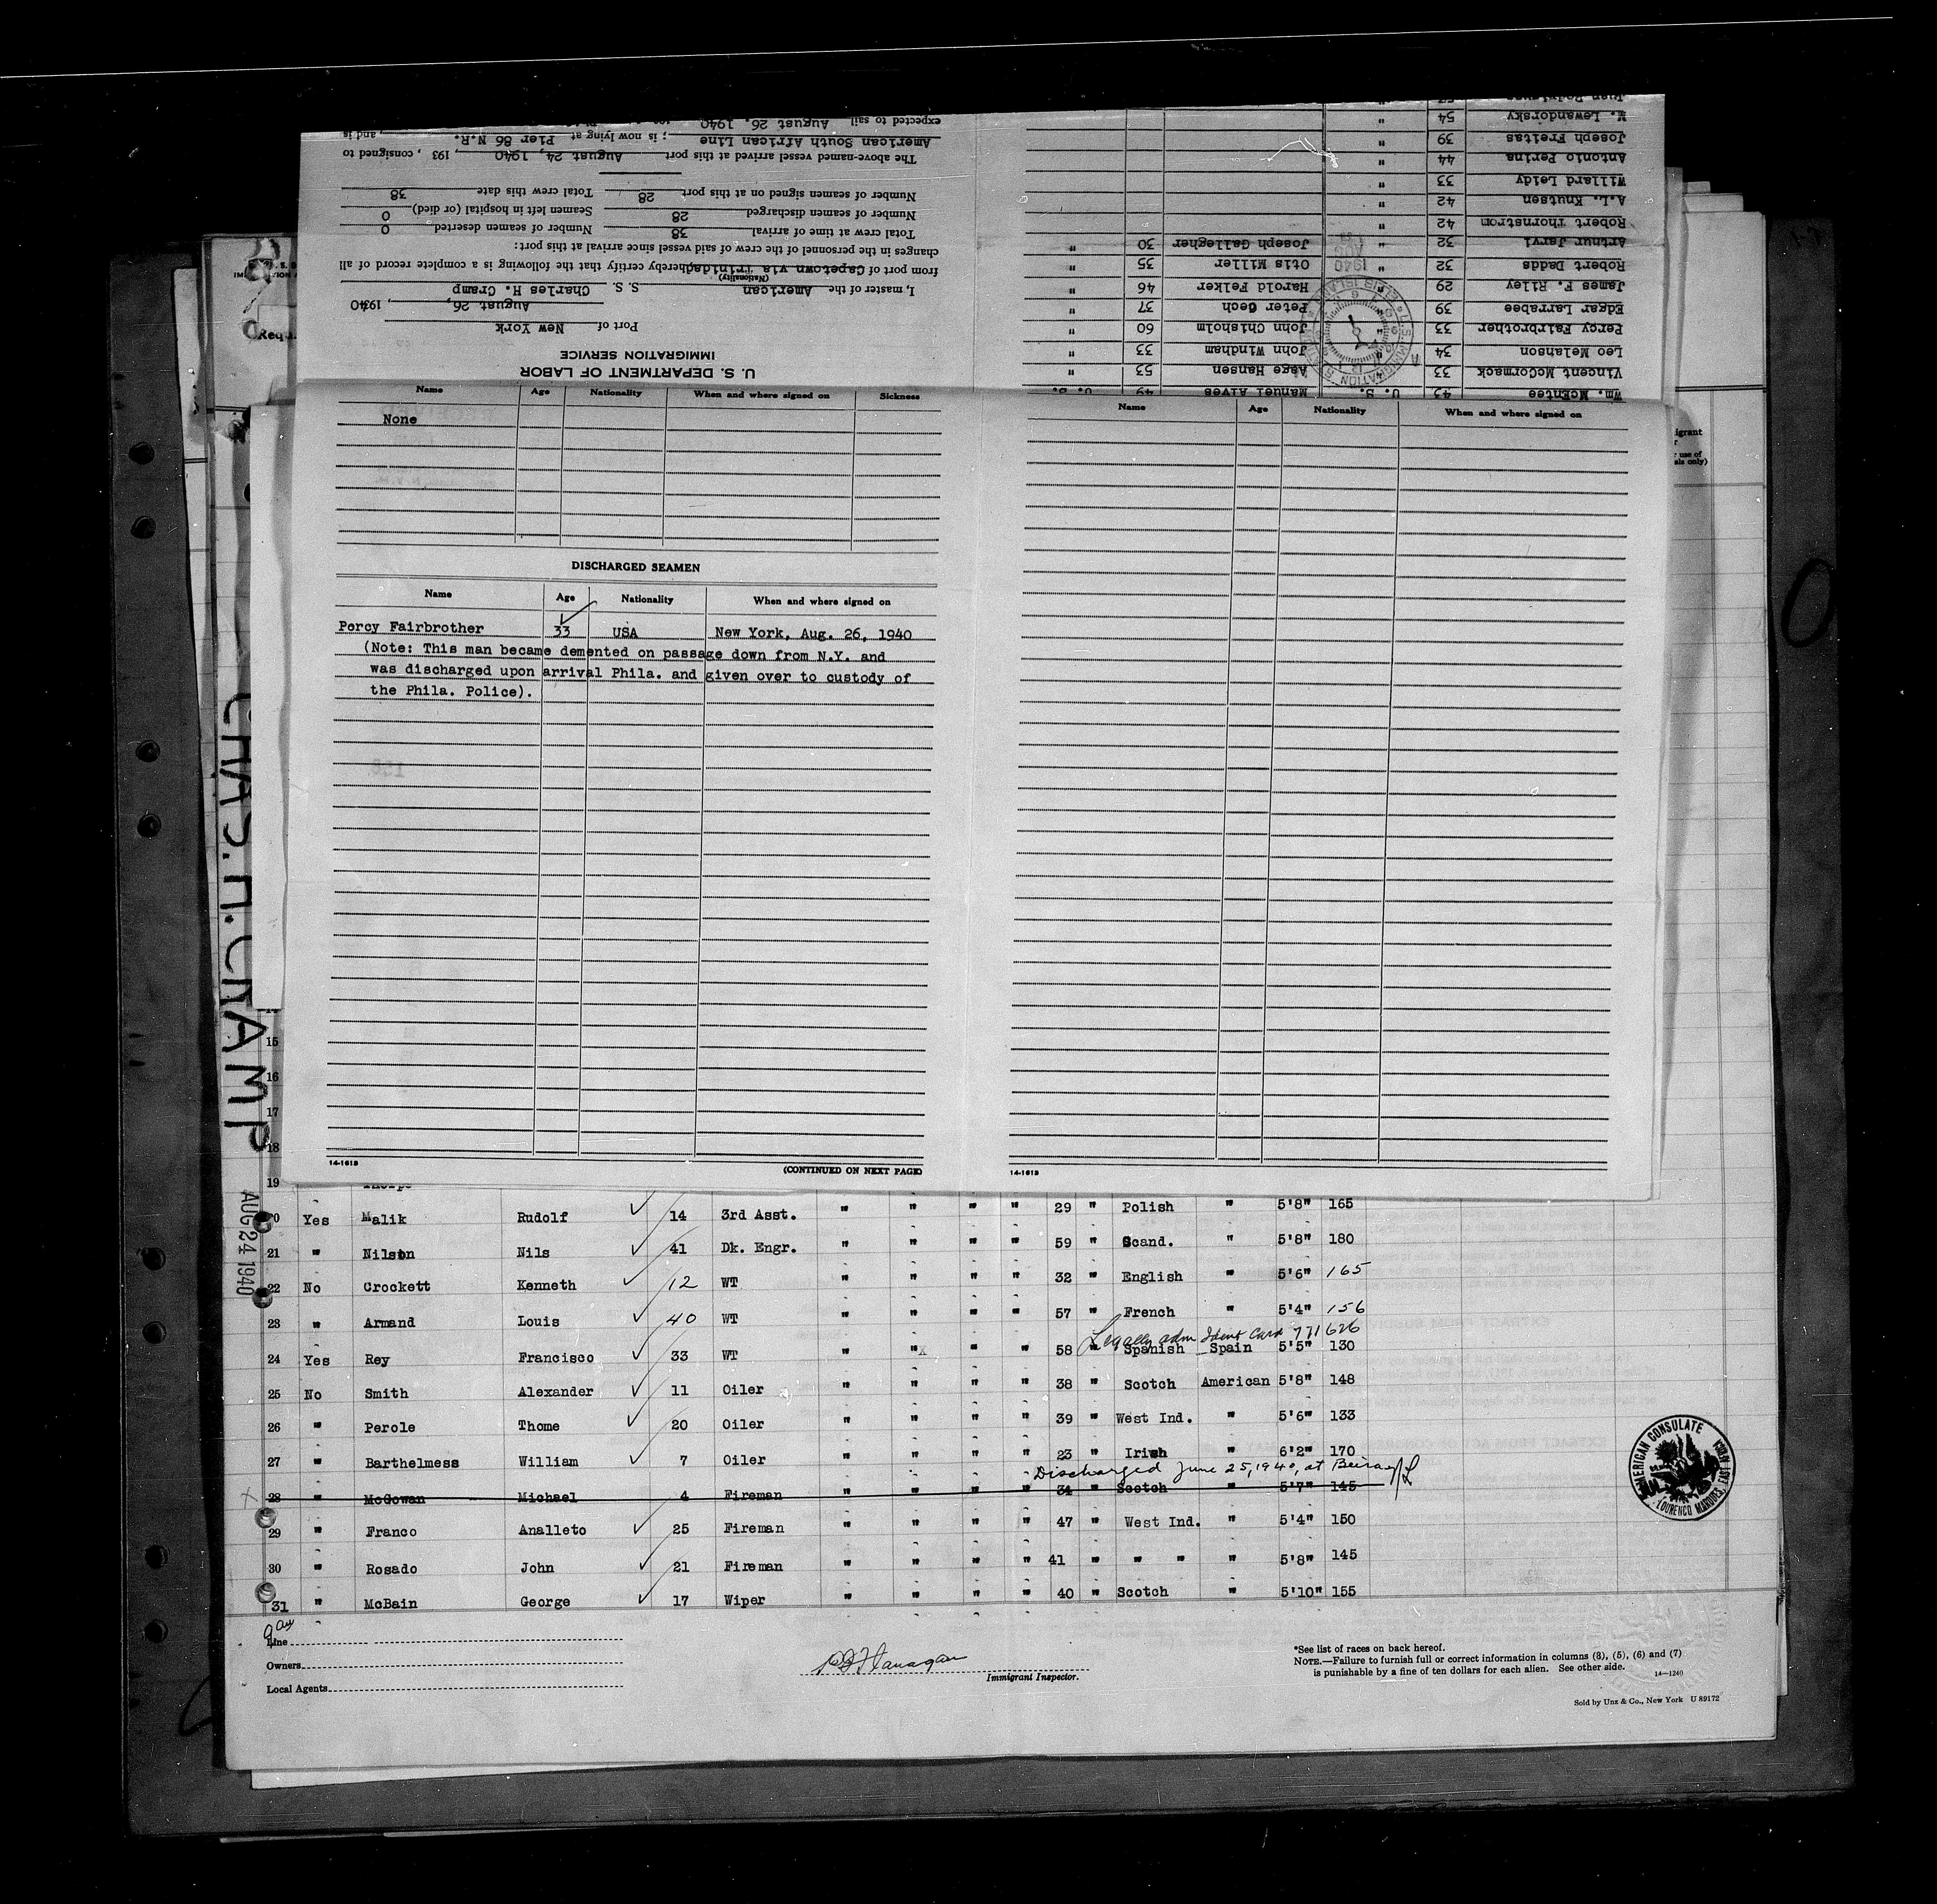 Juan Rodriguez 57
W. Lewandorsky 54 "
Joseph Freitas 39 "
Antonio Perina 44 "
Willard Leidy 33 "
A.L. Knutsen 42 "
Robert Thornstrom 42 "
Arthur Jarvi 32 " Joseph Gallegher 30 "
Robert Dadds 32 " Otis Miller 35 "
James F. Riley 29 " Harold Felker 46 "
Edgar Larrabee 39 " Peter Gech 37 "
Percy Fairbrother 33 " John Chisholm 60 "
Leo Melanson 34 " John Windham 33 "
Vincent McCormack 33 " Aage Hansen 53 "
Wm. McEntee 43 U. S. Manuel Alves 49 U. S.
U. S. DEPARTMENT OF LABOR
IMMIGRATION SERVICE
Port of New York
August 26, 1940
I, master of the American S. S. Charles H. Cramp
(Nationality)
from port of Capetown via Trinidad hereby certify that the following is a complete record of all
changes in the personnel of the crew of said vessel since arrival at this port:
Total crew at time of arrival 38 Number of seamen deserted 0
Number of seamen discharged 28 Seamen left in hospital (or died) 0
Number of seamen signed on at this port 28 Total crew this date 38
The above-named vessel arrived at this port August 24, 1940 193 , consigned to
American South African Line ; is now lying at Pier 86 N.R. , and is
expected to sail August 26, 1940
Name Age Nationality When and where signed on Sickness
None
DISCHARGED SEAMEN
Name Age Nationality When and where signed on
Percy Fairbrother 33 USA New York, Aug. 26, 1940
(Note: This man became demented on passage down from N.Y. and
was discharged upon arrival Phila. and given over to custody of
the Phila. Police).
14-1613 (CONTINUED ON NEXT PAGE)
Name Age Nationality When and where signed on
14-1613
CHAS. H. CRAMP
AUG 24 1940
15
16
17
18
19
20 Yes Malik Rudolf 14 3rd Asst. " " " " 29 " Polish " 5'8" 165
21 " Nilson Nils 41 Dk. Engr. " " " " 59 " Scand. " 5'8" 180
22 No Crockett Kenneth 12 WT " " " " 32 " English " 5'6" 165
23 " Armand Louis 40 WT " " " " 57 " French " 5'4" 156
Legally adm Ident Card 771626
24 Yes Rey Francisco 33 WT " " " " 58 " Spanish Spain 5'5" 130
25 No Smith Alexander 11 Oiler " " " " 38 " Scotch American 5'8" 148
26 " Perole Thome 20 Oiler " " " " 39 " West Ind. " 5'6" 133
27 " Barthelmess William 7 Oiler " " " " 23 " Irish " 6'2" 170
Discharged June 25, 1940, at Beira
28 " McGowan Michael 4 Fireman " " " " 34 " Scotch " 5'7" 145
29 " Franco Analleto 25 Fireman " " " " 47 " West Ind. " 5'4" 150
30 " Rosado John 21 Fireman " " " " 41 " " " " 5'8" 145
31 " McBain George 17 Wiper " " " " 40 " Scotch " 5'10" 155
AMERICAN CONSULATE
LOURENCO MARQUES
Line
Owners
Local Agents
Immigrant Inspector.
*See list of races on back hereof.
NOTE.—Failure to furnish full or correct information in columns (3), (5), (6) and (7)
is punishable by a fine of ten dollars for each alien. See other side.
14—1240
Sold by Unz & Co., New York U 89172